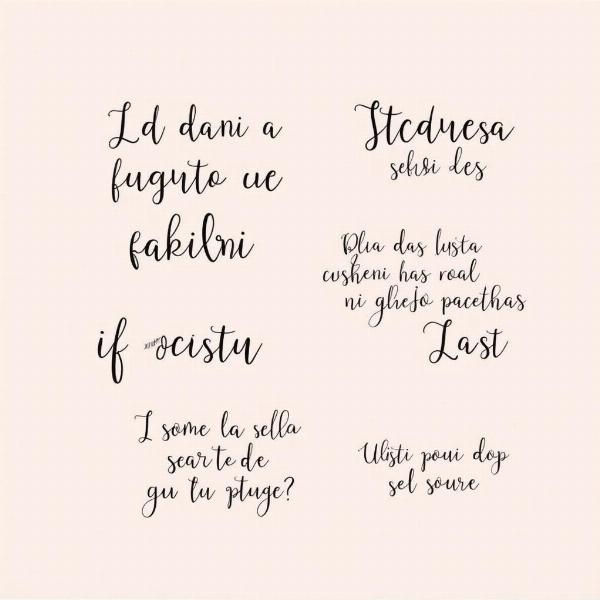 Ld dani a
fuguto ue
fakilni
if ocistu
I some la sella
searte de
gu tu ptuge?
Stcduesa
sehsi des
Plia das lusta
cusheni has roal
ni ghejo pacethas
Last
Ulisti poui dop
sel soure